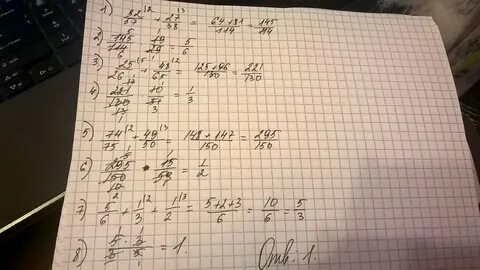 1) 32/57 + 27/38 = 64+81/114 = 145/114
2) 145/114 · 19/29 = 5/6
3) 25/26 + 48/65 = 125+96/130 = 221/130
4) 221/130 · 10/51 = 1/3
5) 74/75 + 49/50 = 148+147/150 = 295/150
6) 295/150 · 15/59 = 1/2
7) 5/6 + 1/3 + 1/2 = 5+2+3/6 = 10/6 = 5/3
8) 5/3 · 3/5 = 1. Отв: 1.